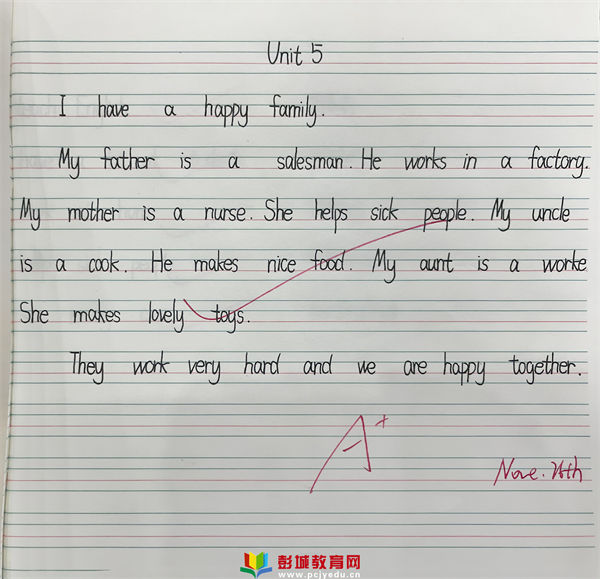 Unit 5
I have a happy family.
My father is a salesman. He works in a factory.
My mother is a nurse. She helps sick people. My uncle
is a cook. He makes nice food. My aunt is a worke
She makes lovely toys.
They work very hard and we are happy together.
A+
Nove.
彭城教育网
www.pcjyedu.cn